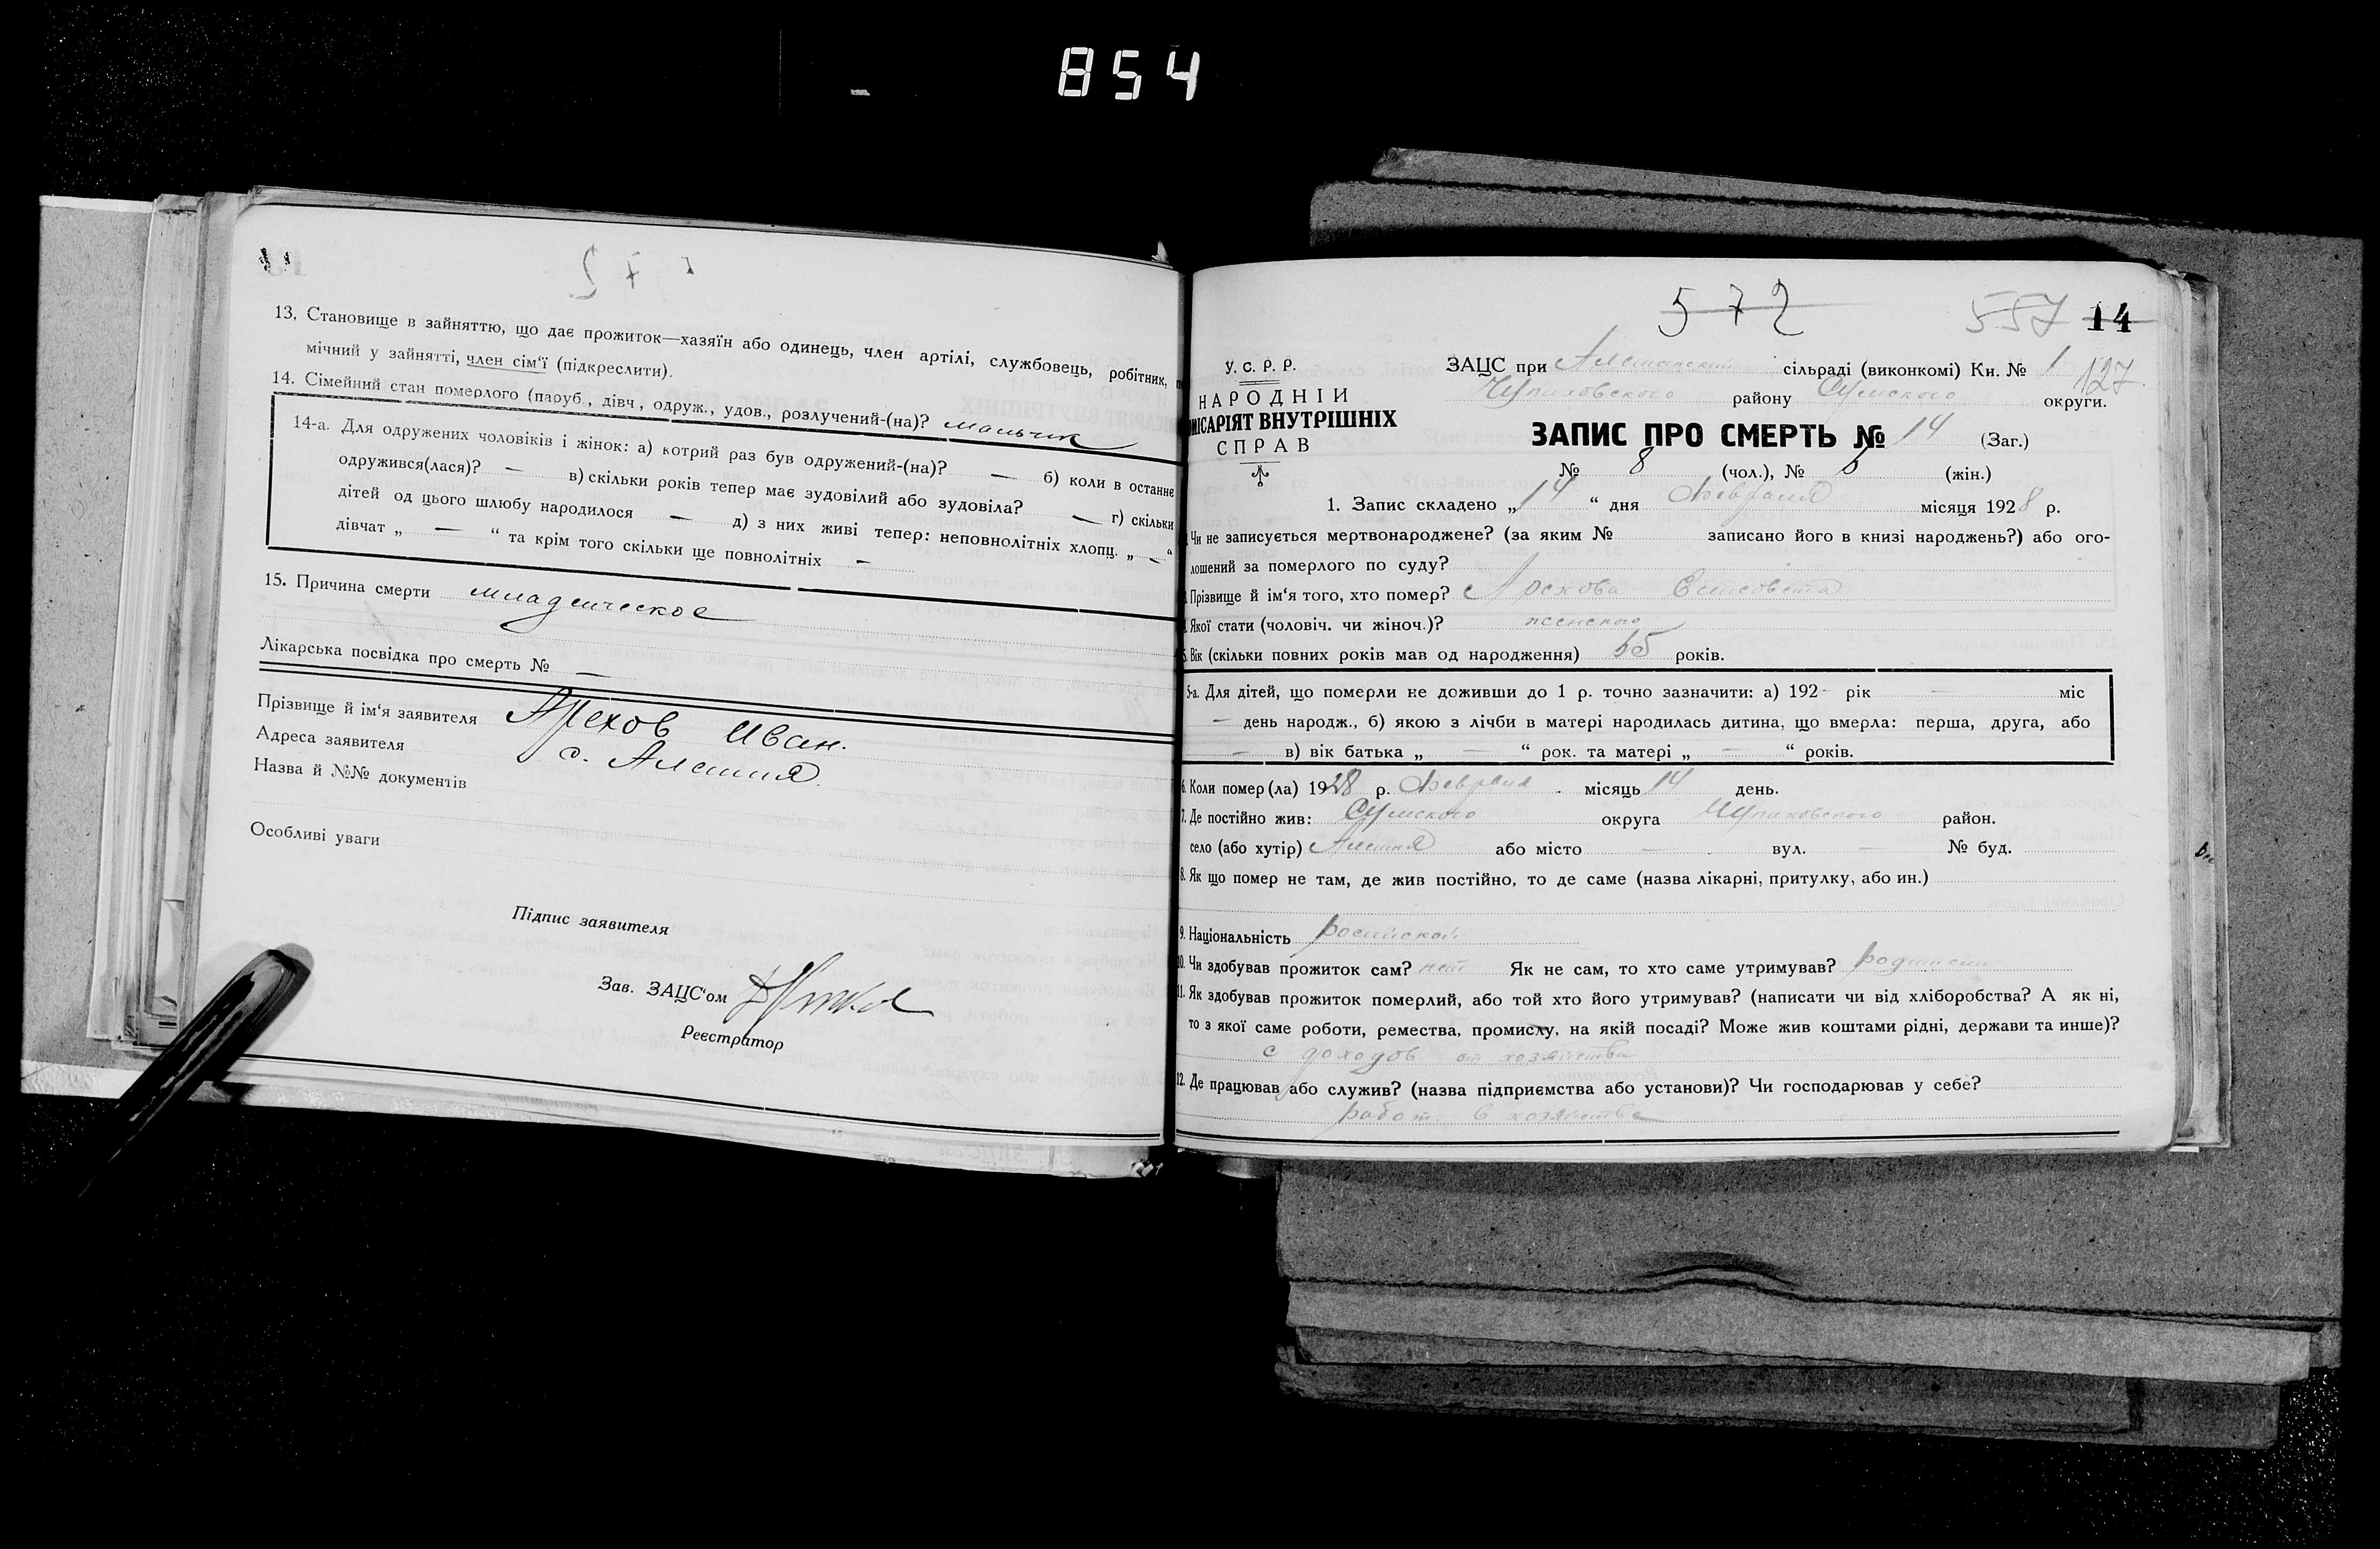 854
13. Становище в зайняттю, що дає прожиток—хазяїн або одинець, член артілі, службовець, робітник,
мічний у зайнятті, член сім'ї (підкреслити).
14. Сімейний стан померлого (паруб., дівч, одруж., удов., розлучений-(на)? мальчик
14-а. Для одружених чоловіків і жінок: а) котрий раз був одружений-(на)? — б) коли в останнє
одружився(лася)? — в) скільки років тепер має зудовілий або зудовіла? — г) скільки
дітей од цього шлюбу народилося — д) з них живі тепер: неповнолітніх хлопц. „ — “
дівчат „ — “ та крім того скільки ще повнолітніх —
15. Причина смерти младенческое
Лікарська посвідка про смерть № —
Прізвище й ім'я заявителя Арехов Иван.
Адреса заявителя с. Алешня.
Назва й №№ документів
Особливі уваги
Підпис заявителя
Зав. ЗАЦС'ом
Реєстратор
572
557 14
127
У. С. Р. Р.
НАРОДНІЙ
МІСАРІЯТ ВНУТРІШНІХ
СПРАВ
ЗАЦС при Алешанский сільраді (виконкомі) Кн. № 1
Чупиховского району Сумского округи.
ЗАПИС ПРО СМЕРТЬ № 14 (Заг.)
№ 8 (чол.), № 6 (жін.)
1. Запис складено „14“ дня Февраля місяця 1928 р.
Чи не записується мертвонароджене? (за яким № записано його в книзі народжень?) або ого-
лошений за померлого по суду?
Прізвище й ім'я того, хто помер? Арехова Елисовета
Якої стати (чоловіч. чи жіноч.)? женского
5. Вік (скільки повних років мав од народження) 65 років.
5-а. Для дітей, що померли не доживши до 1 р. точно зазначити: а) 192 - рік — міс
— день народж., б) якою з лічби в матері народилась дитина, що вмерла: перша, друга, або
— в) вік батька „ — “ рок. та матері „ — “ років.
6. Коли помер(ла) 1928 р. Февраля місяць 14 день.
7. Де постійно жив: Сумского округа Чупиховского район.
село (або хутір) Алешня або місто — вул. — № буд.
8. Як що помер не там, де жив постійно, то де саме (назва лікарні, притулку, або ин.)
9. Національність
10. Чи здобував прожиток сам? нет Як не сам, то хто саме утримував?
11. Як здобував прожиток померлий, або той хто його утримував? (написати чи від хліборобства? А як ні,
то з якої саме роботи, ремества, промислу, на якій посаді? Може жив коштами рідні, держави та инше)?
с доходов от хозяйства
12. Де працював або служив? (назва підприємства або установи)? Чи господарював у себе?
работ. в хозяйстве